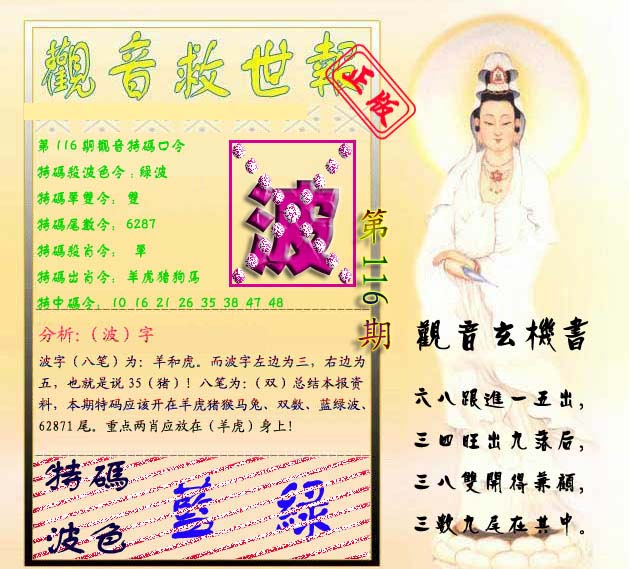 觀音救世報
正版
第116期觀音特碼口令
特碼殺波色令：綠波
特碼單雙令： 雙
特碼尾數令： 6287
特碼殺肖令： 單
特碼出肖令： 羊虎猪狗馬
特中碼令： 10 16 21 26 35 38 47 48
波
第116期
分析:（波）字
波字（八笔）为：羊和虎。而波字左边为三，右边为
五，也就是说 35（猪）！八笔为：（双）总结本报资
料，本期特码应该开在羊虎猪猴马兔、双数、蓝绿波、
62871 尾。重点两肖应放在（羊虎）身上！
特碼
波色
藍 綠
觀音玄機書
六八跟進一五出，
三四旺出九落后，
三八雙開得兼顧，
三數九尾在其中。